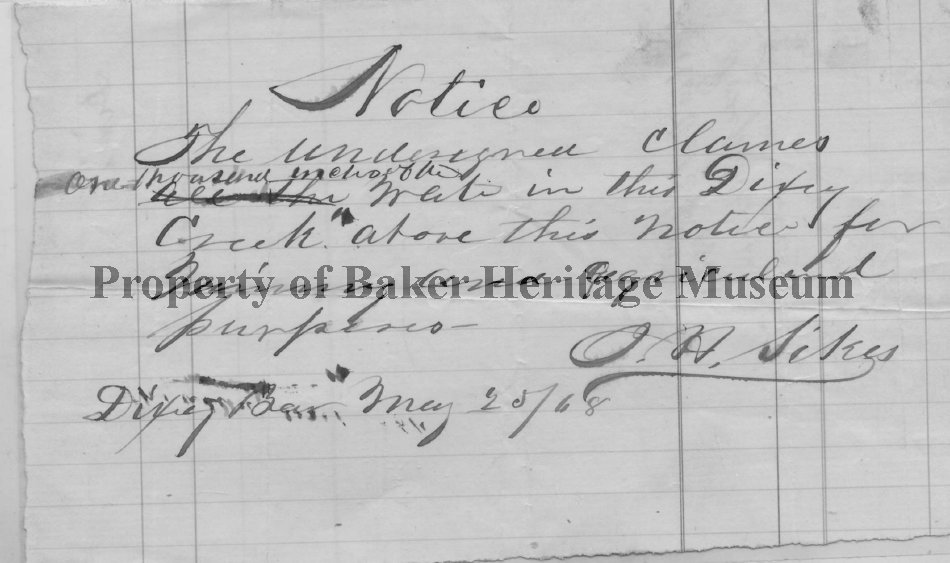 Notice
The undersigned clames
One thousand inches of the
all the water in this Dixey
Creek above this notice for
Mining and agricultural
Property of Baker Heritage Museum
purposes
J. H. Sikes
Dixey Bar May 25/68